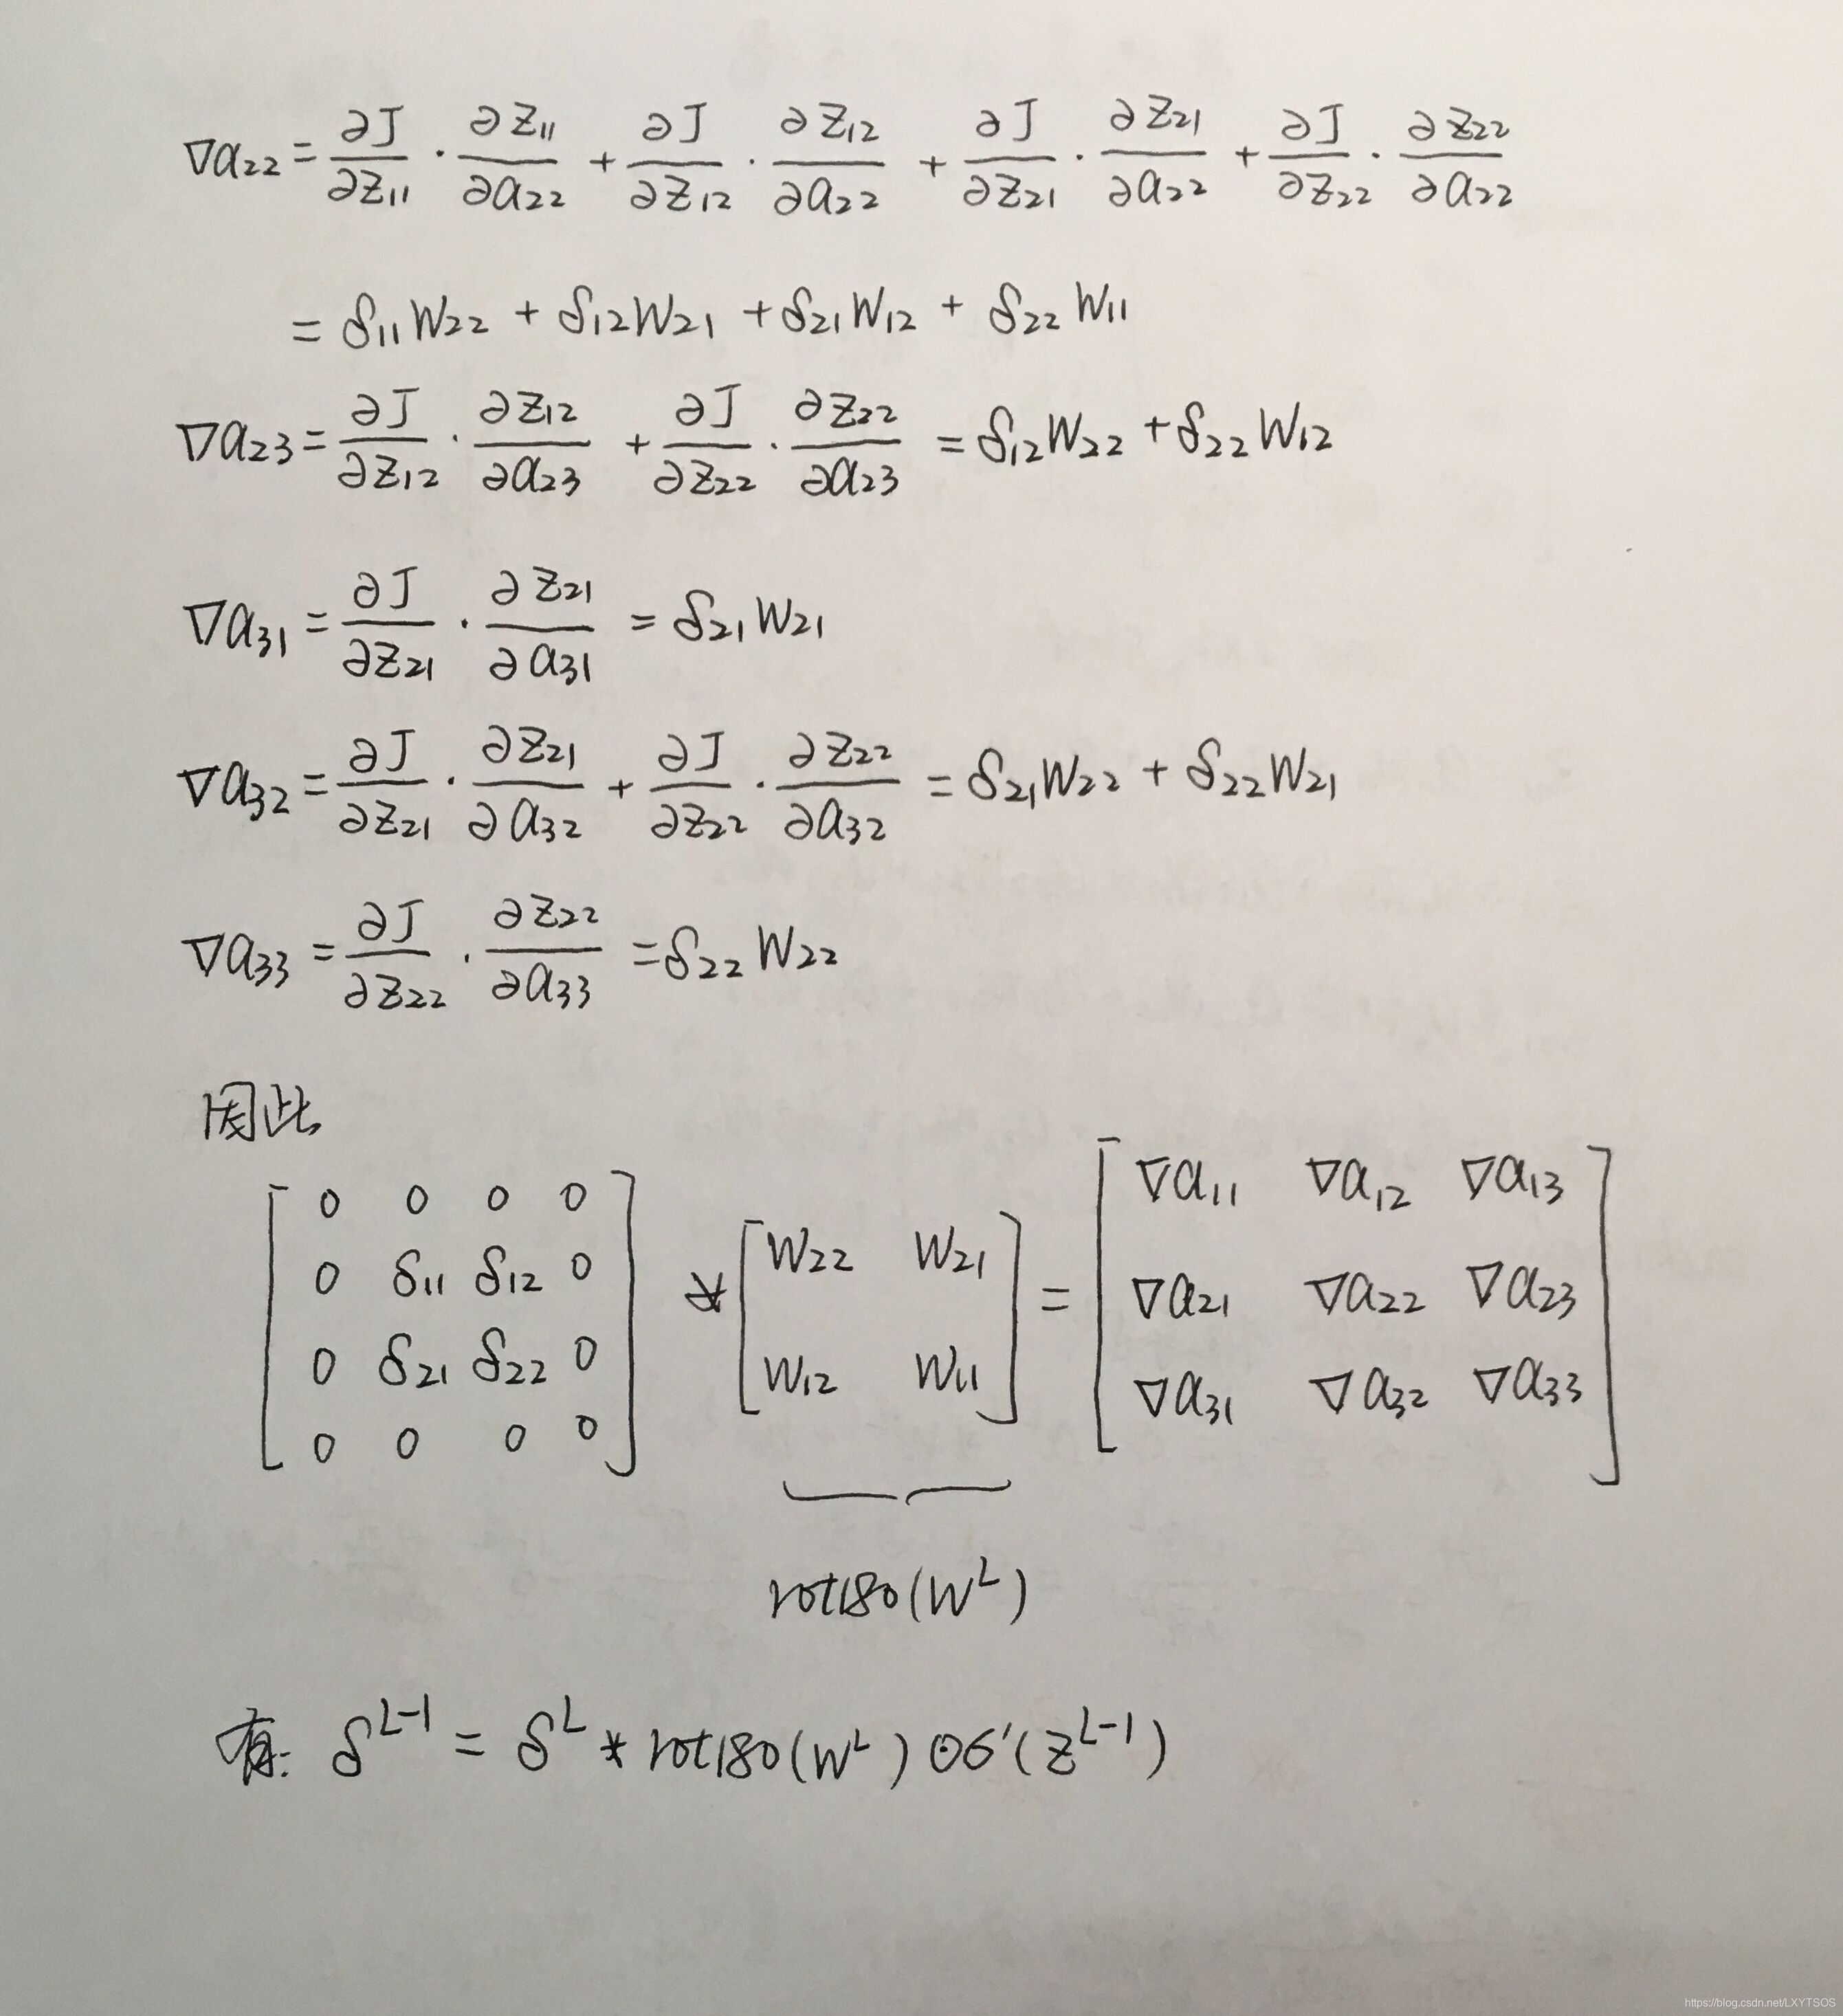 ∇a₂₂ = ∂J/∂z₁₁ · ∂z₁₁/∂a₂₂ + ∂J/∂z₁₂ · ∂z₁₂/∂a₂₂ + ∂J/∂z₂₁ · ∂z₂₁/∂a₂₂ + ∂J/∂z₂₂ · ∂z₂₂/∂a₂₂
= δ₁₁W₂₂ + δ₁₂W₂₁ + δ₂₁W₁₂ + δ₂₂W₁₁
∇a₂₃ = ∂J/∂z₁₂ · ∂z₁₂/∂a₂₃ + ∂J/∂z₂₂ · ∂z₂₂/∂a₂₃ = δ₁₂W₂₂ + δ₂₂W₁₂
∇a₃₁ = ∂J/∂z₂₁ · ∂z₂₁/∂a₃₁ = δ₂₁W₂₁
∇a₃₂ = ∂J/∂z₂₁ · ∂z₂₁/∂a₃₂ + ∂J/∂z₂₂ · ∂z₂₂/∂a₃₂ = δ₂₁W₂₂ + δ₂₂W₂₁
∇a₃₃ = ∂J/∂z₂₂ · ∂z₂₂/∂a₃₃ = δ₂₂W₂₂
因此
[0 0 0 0; 0 δ₁₁ δ₁₂ 0; 0 δ₂₁ δ₂₂ 0; 0 0 0 0] * [W₂₂ W₂₁; W₁₂ W₁₁] = [∇a₁₁ ∇a₁₂ ∇a₁₃; ∇a₂₁ ∇a₂₂ ∇a₂₃; ∇a₃₁ ∇a₃₂ ∇a₃₃]
rot180(W^L)
有: δ^(L-1) = δ^L * rot180(W^L) ⊙ σ'(z^(L-1))
https://blog.csdn.net/LXYTSOS